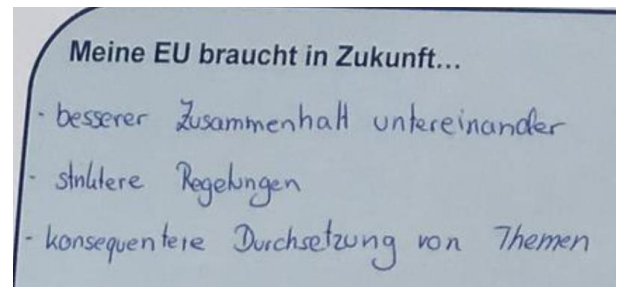 Meine EU braucht in Zukunft...
- besserer Zusammenhalt untereinander
- striktere Regelungen
- konsequentere Durchsetzung von Themen